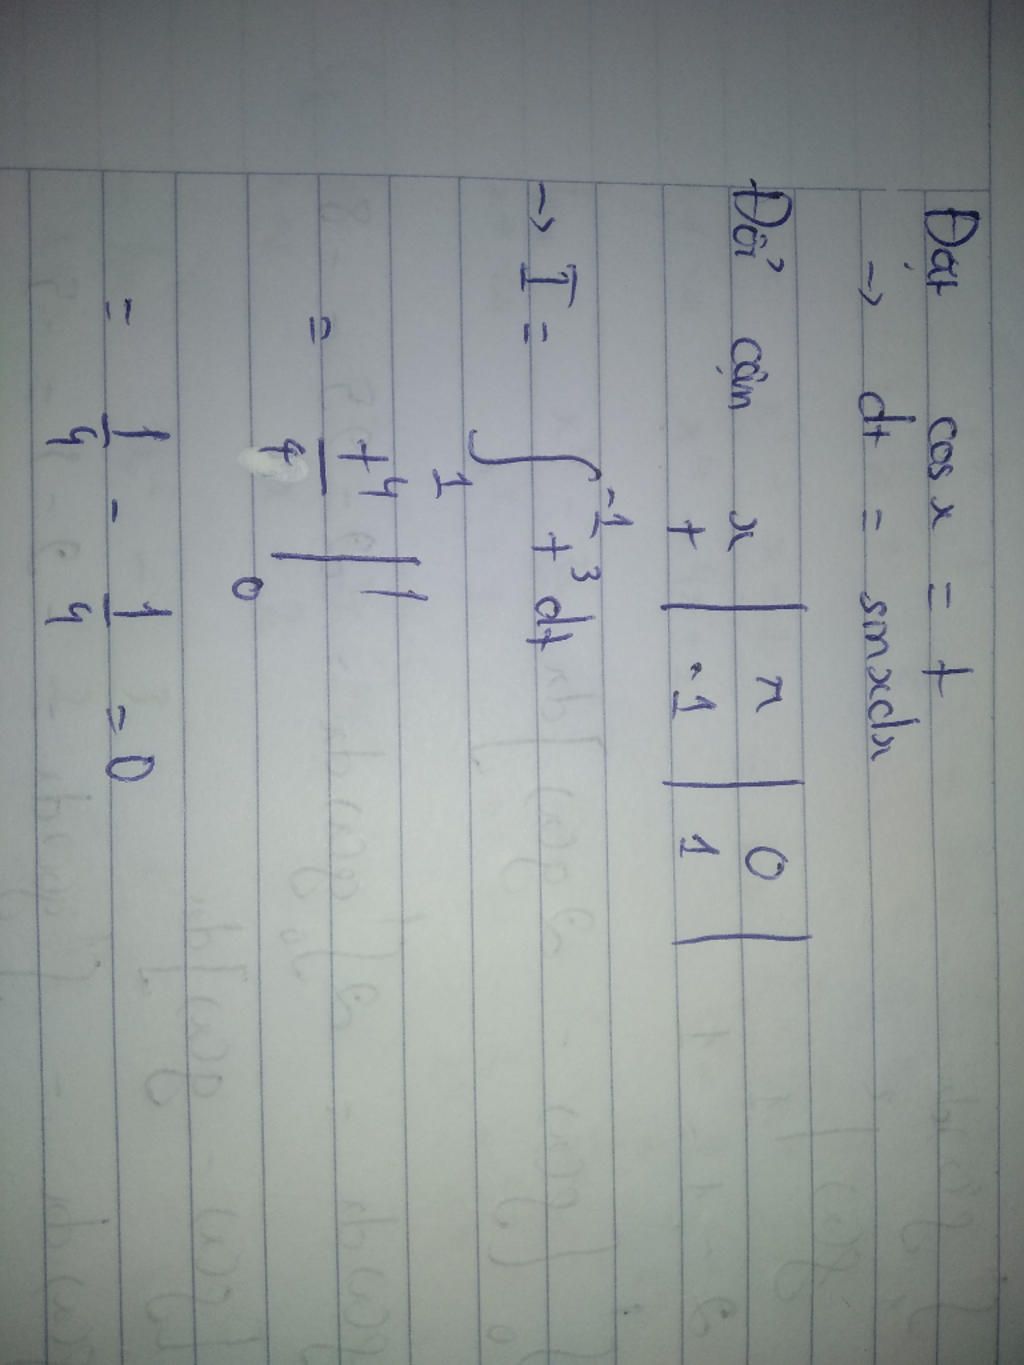 Đặt cos x = t
→ dt = sinxdx
Đổi cận x | π | 0
t | -1 | 1
→ I = ∫₁⁻¹ t³ dt
= t⁴/4 |₀¹
= 1/4 - 1/4 = 0